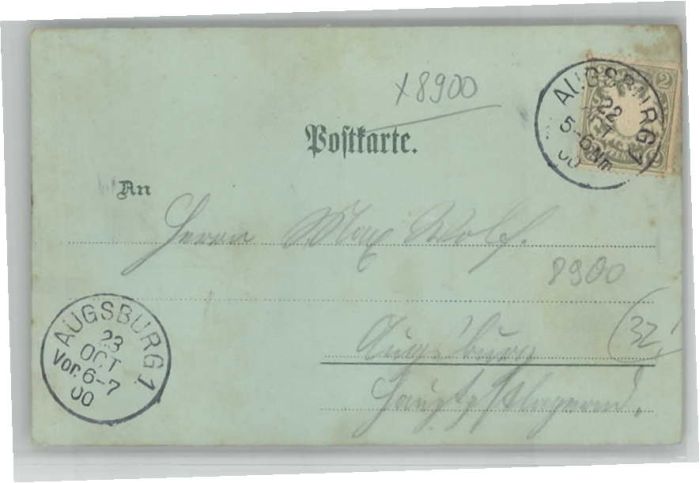 x8900
AUGSBURG 1
22
OCT
5-6 Nm
00
2
Postkarte.
An
Herrn Max Wolf.
8900
Augsburg
(32)
hauptpostlagernd.
AUGSBURG 1
23
OCT
Vor. 6-7
00